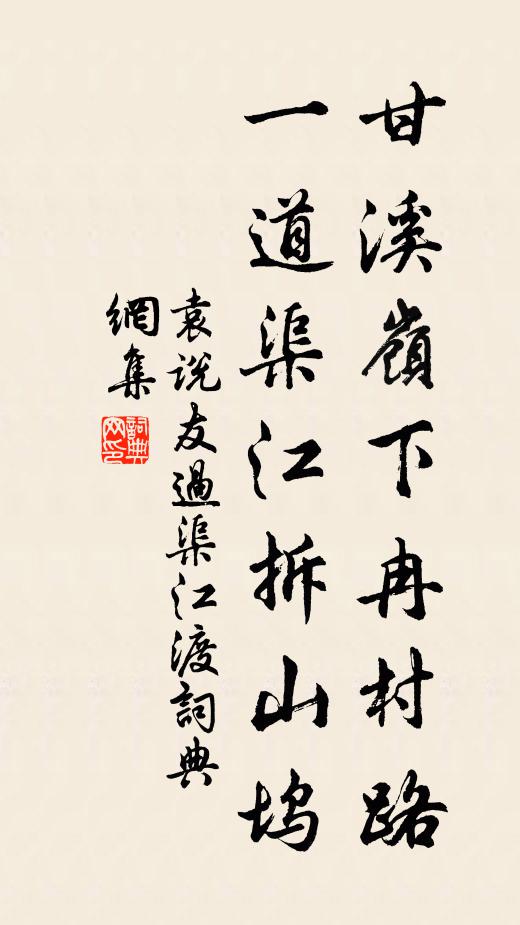 甘溪嶺下冉村路
一道渠江拆山塢
袁説友過渠江渡詞典
網集
詞典
网印